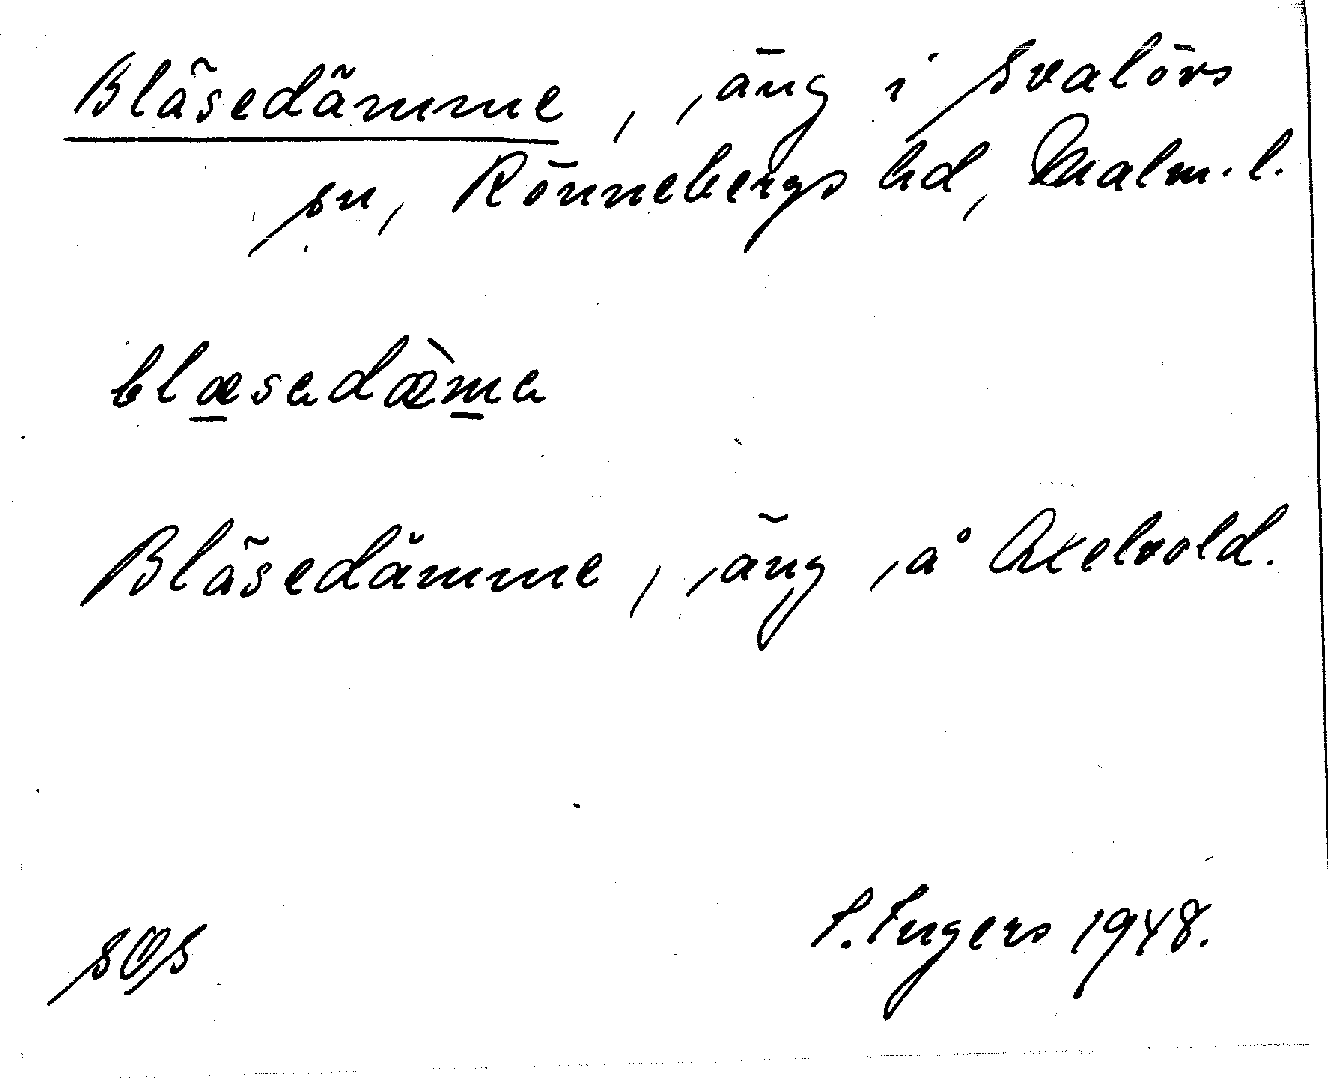 Bläsedämme, äng i Svalövs
sn, Rönnebergs hd, Malm. l.
blæsadæ̀ma
Bläsedämme, äng å Axelvold.
SOS
I. Ingers 1948.